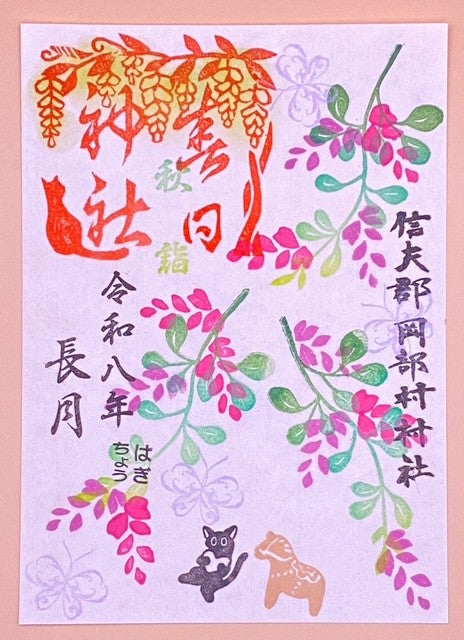 春日
神社
秋詣
信夫郡岡部村村社
令和八年
長月
はぎ
ちょう